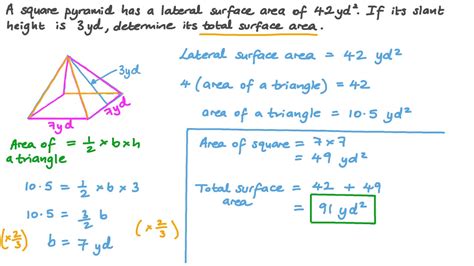 A square pyramid has a lateral surface area of 42yd². If its slant
height is 3yd, determine its total surface area.
3yd
7yd
7yd
Lateral surface area = 42 yd²
4 (area of a triangle) = 42
area of a triangle = 10.5 yd²
Area of a triangle = 1/2 × b × h
10.5 = 1/2 × b × 3
10.5 = 3/2 b
(×2/3) b = 7 yd (×2/3)
Area of square = 7×7
= 49 yd²
Total surface area = 42 + 49
= 91 yd²